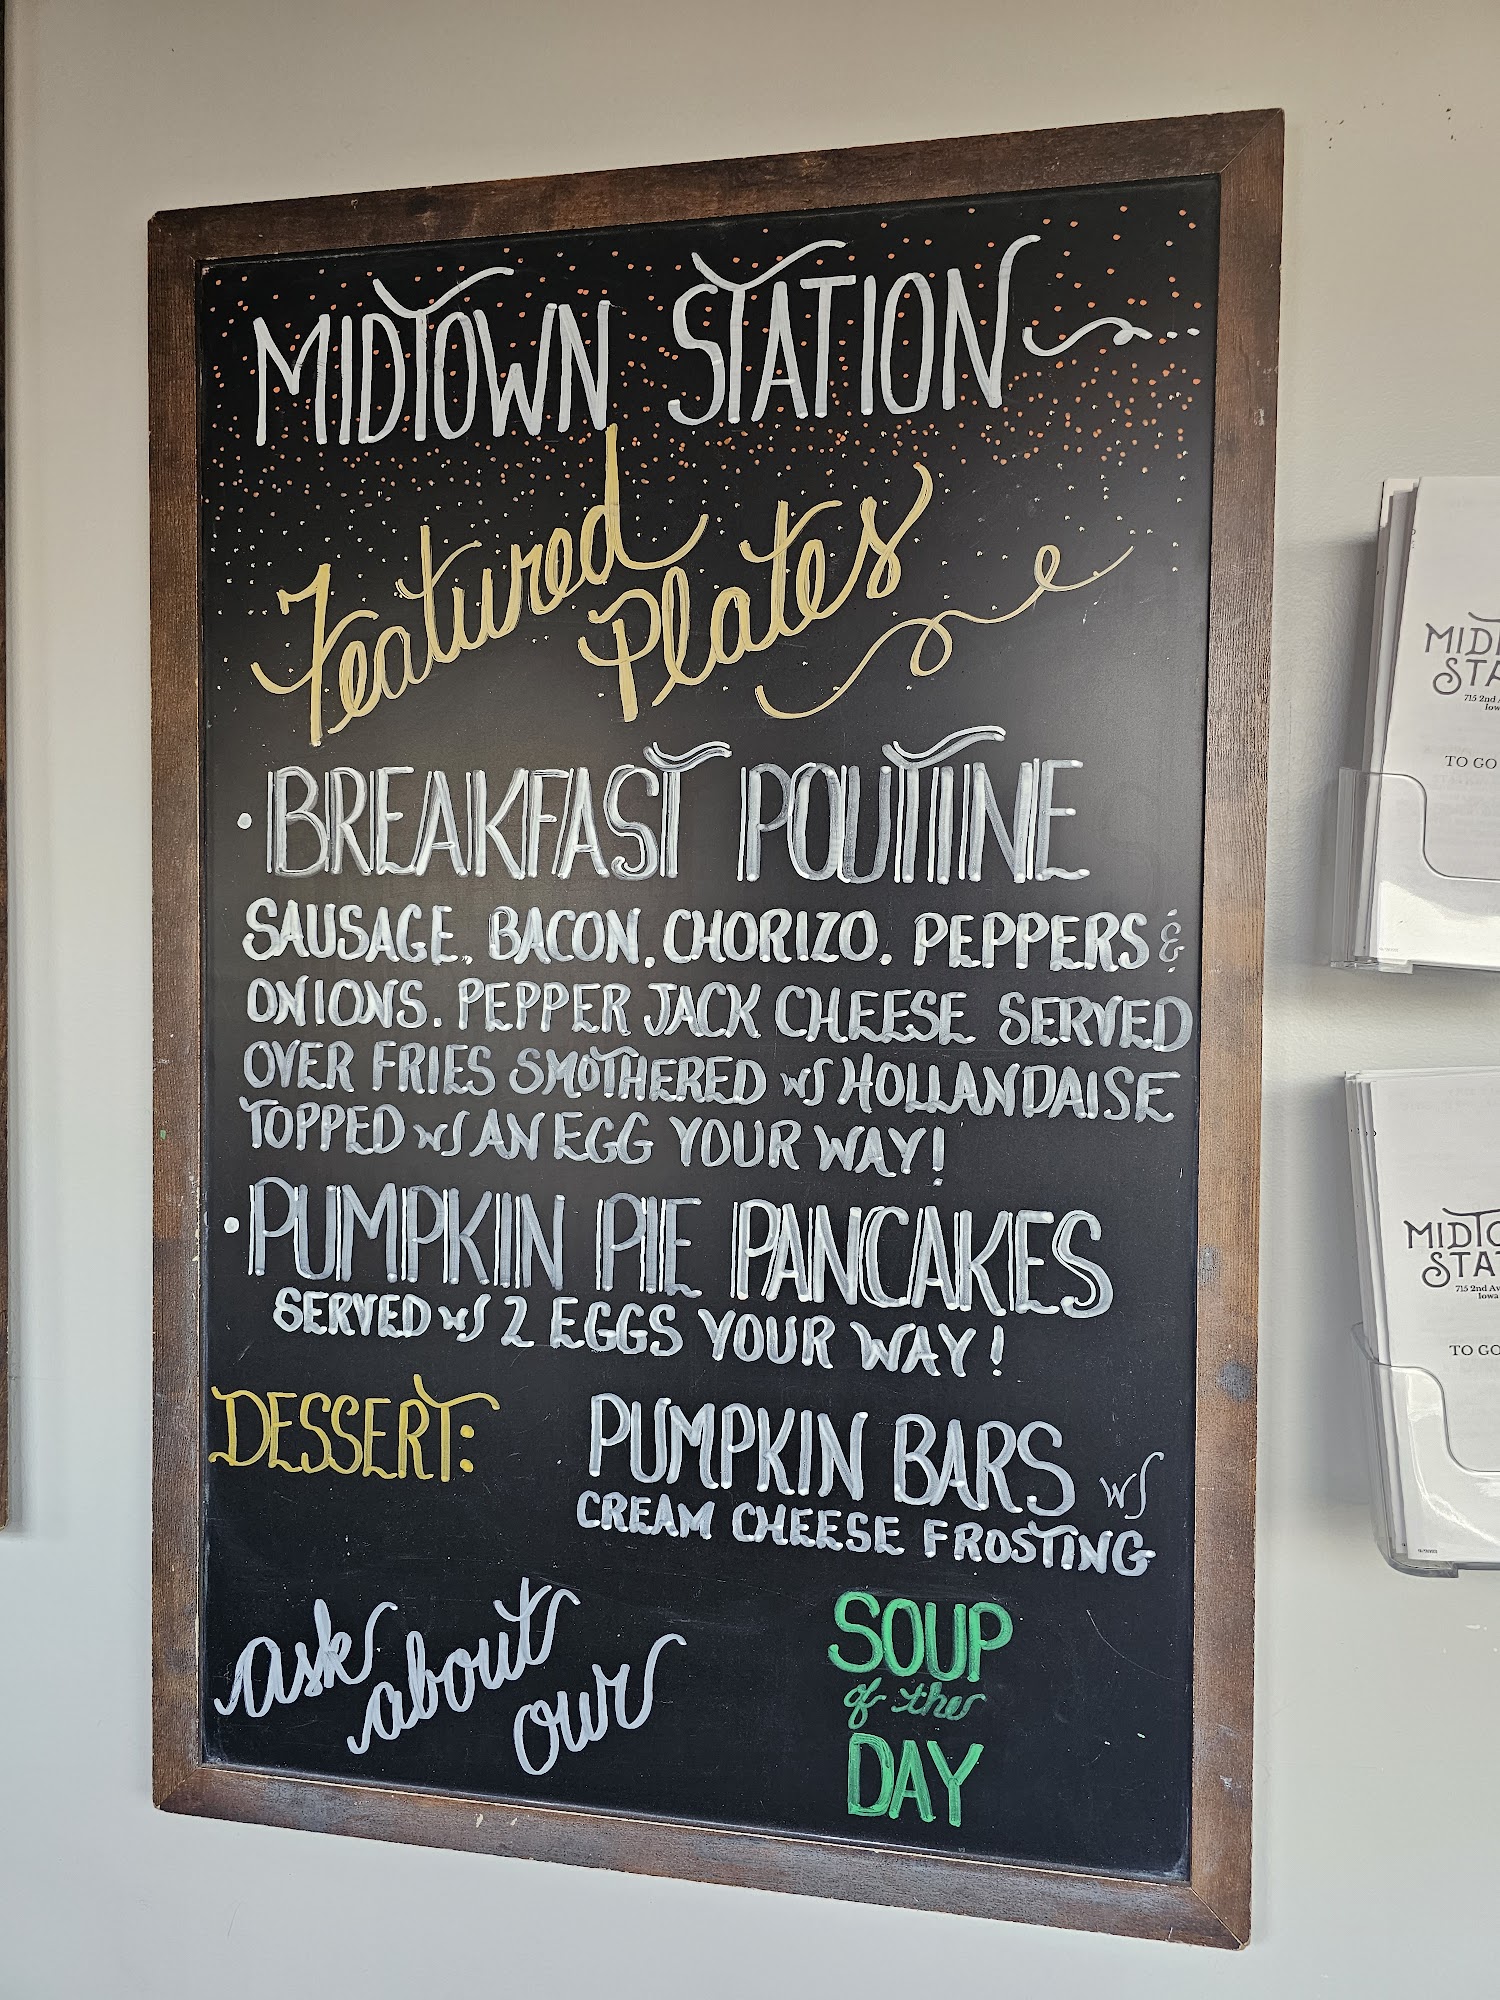 MIDTOWN STATION
Featured
Plates
• BREAKFAST POUTINE
SAUSAGE, BACON, CHORIZO, PEPPERS &
ONIONS, PEPPER JACK CHEESE SERVED
OVER FRIES SMOTHERED w/ HOLLANDAISE
TOPPED w/ AN EGG YOUR WAY!
• PUMPKIN PIE PANCAKES
SERVED w/ 2 EGGS YOUR WAY!
DESSERT: PUMPKIN BARS w/
CREAM CHEESE FROSTING
ask
about
our
SOUP
of the
DAY
MID
STA
715 2nd A
Iow
TO GO
MIDTO
STA
715 2nd Av
Iowa
TO GO